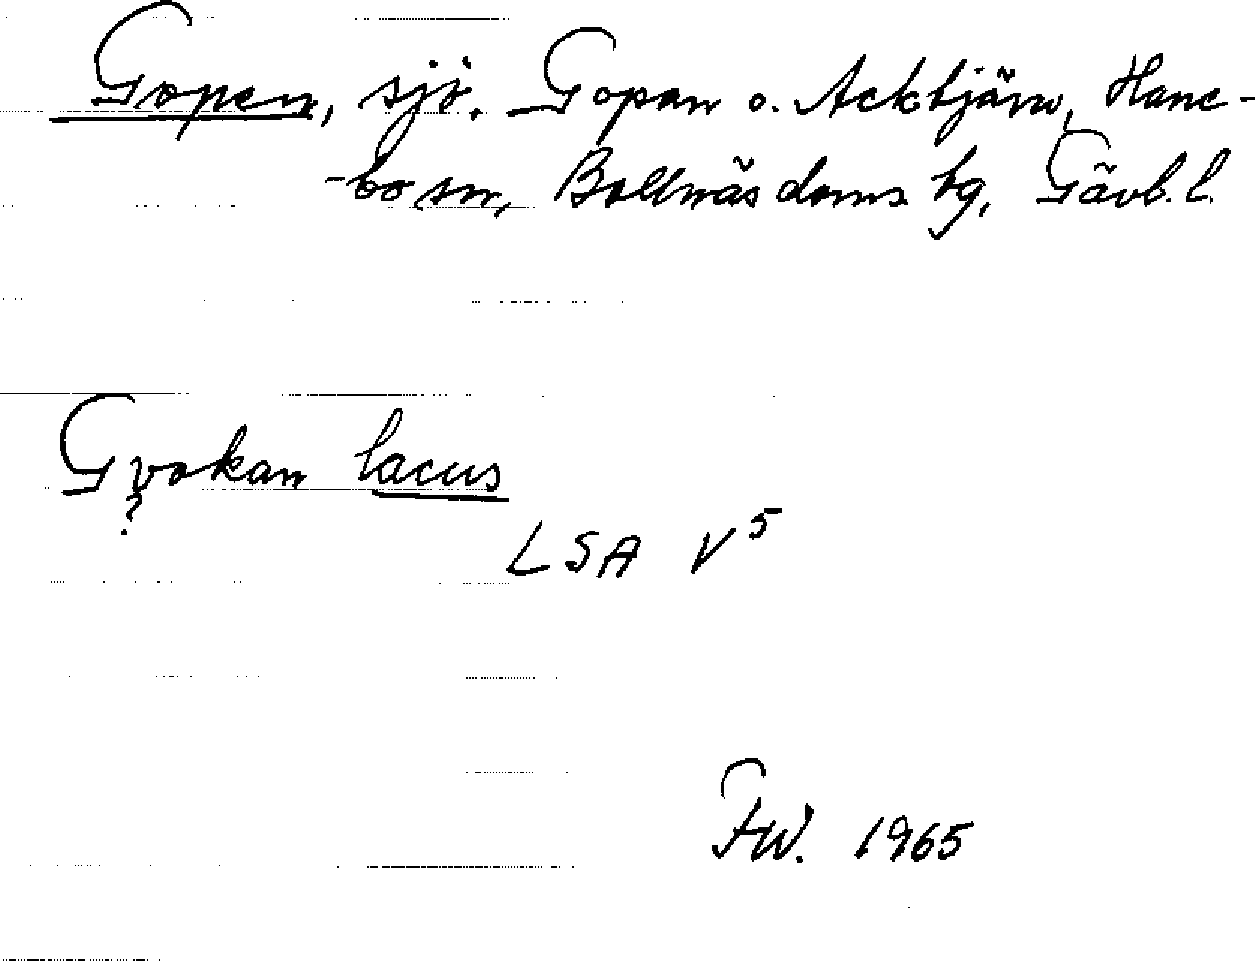 Gopen, sjö. Gopan o. Acktjärn, Hane-
-bo sn, Bollnäs doms. tg, Gävl. l.
Gvokan lacus
?
LSA V5
FW. 1965